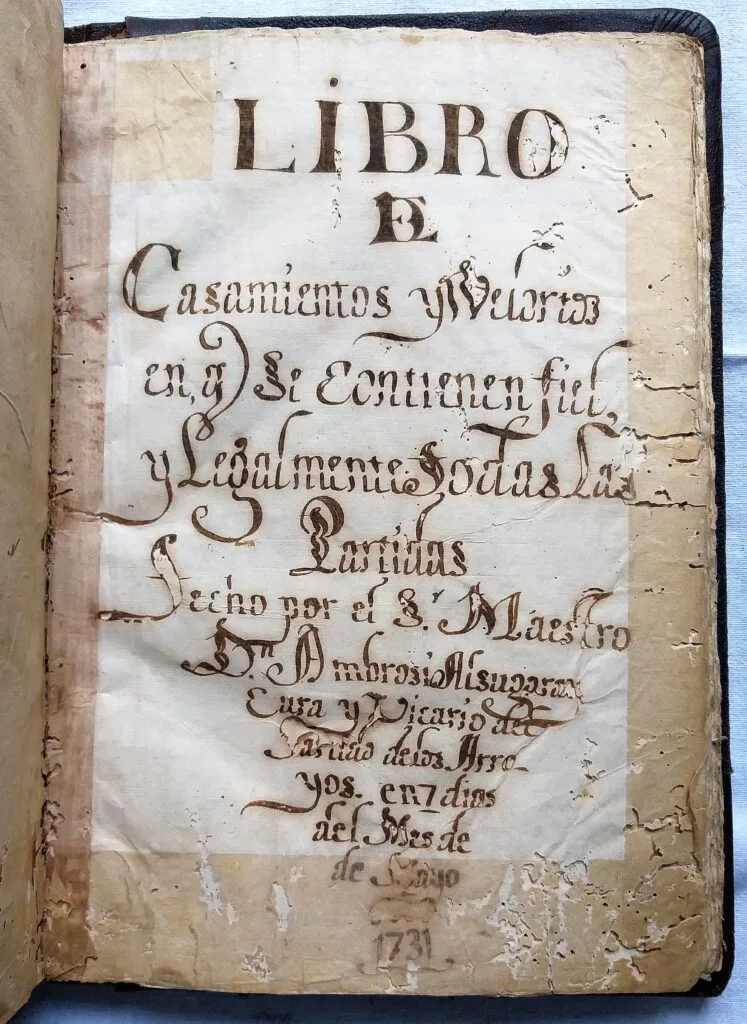 LIBRO
DE
Casamientos y Velorios
en, q) Se Contienen fiel,
y Legalmente todas Las
Partidas
Fecho por el Sr. Maestro
Dn. Ambrosi Alsugaray
Cura y Vicario del
Partido de los Arro
yos. en 7 dias
del Mes de
de Mayo
1731